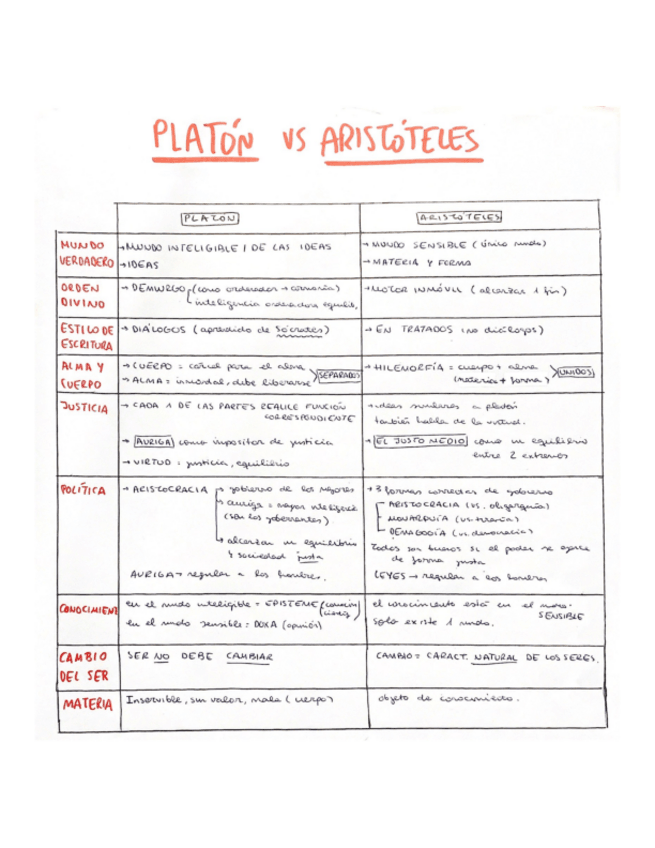 PLATÓN VS ARISTÓTELES
PLATÓN
ARISTÓTELES
MUNDO VERDADERO
→ MUNDO INTELIGIBLE / DE LAS IDEAS
→ IDEAS
→ MUNDO SENSIBLE (único mundo)
→ MATERIA Y FORMA
ORDEN DIVINO
→ DEMIURGO (como ordenador →
inteligencia ordenadora
→ MOTOR INMÓVIL (alcanzar 1 fin)
ESTILO DE ESCRITURA
→ DIÁLOGOS (aprendido de Sócrates)
→ EN TRATADOS (no diálogos)
ALMA Y CUERPO
→ CUERPO = cárcel para el alma
→ ALMA = inmortal, debe liberarse
SEPARADOS
→ HILEMORFÍA = cuerpo + alma
(materia + forma)
UNIDOS
JUSTICIA
→ CADA 1 DE LAS PARTES REALICE FUNCIÓN
CORRESPONDIENTE
→ AURIGA como impositor de justicia
→ VIRTUD = justicia, equilibrio
→ ideas similares a platón
también habla de la virtud.
→ EL JUSTO MEDIO como un equilibrio
entre 2 extremos
POLÍTICA
→ ARISTOCRACIA
→ gobierno de los mejores
→ auriga = mayor inteligencia
(son los gobernantes)
→ alcanzan un equilibrio
y sociedad justa
AURIGA → regular a los hombres.
→ 3 formas correctas de gobierno
ARISTOCRACIA (vs. oligarquía)
MONARQUÍA (vs. tiranía)
DEMAGOGIA (vs. democracia)
Todas son buenas si el poder se ejerce
de forma justa
LEYES → regular a los hombres
CONOCIMIENT
en el mundo inteligible = EPISTEME
en el mundo sensible = DOXA (opinión)
el conocimiento está en el mundo
SENSIBLE
solo existe 1 mundo.
CAMBIO DEL SER
SER NO DEBE CAMBIAR
CAMBIO = CARACT. NATURAL DE LOS SERES.
MATERIA
Inservible, sin valor, mala (cuerpo)
objeto de conocimiento.